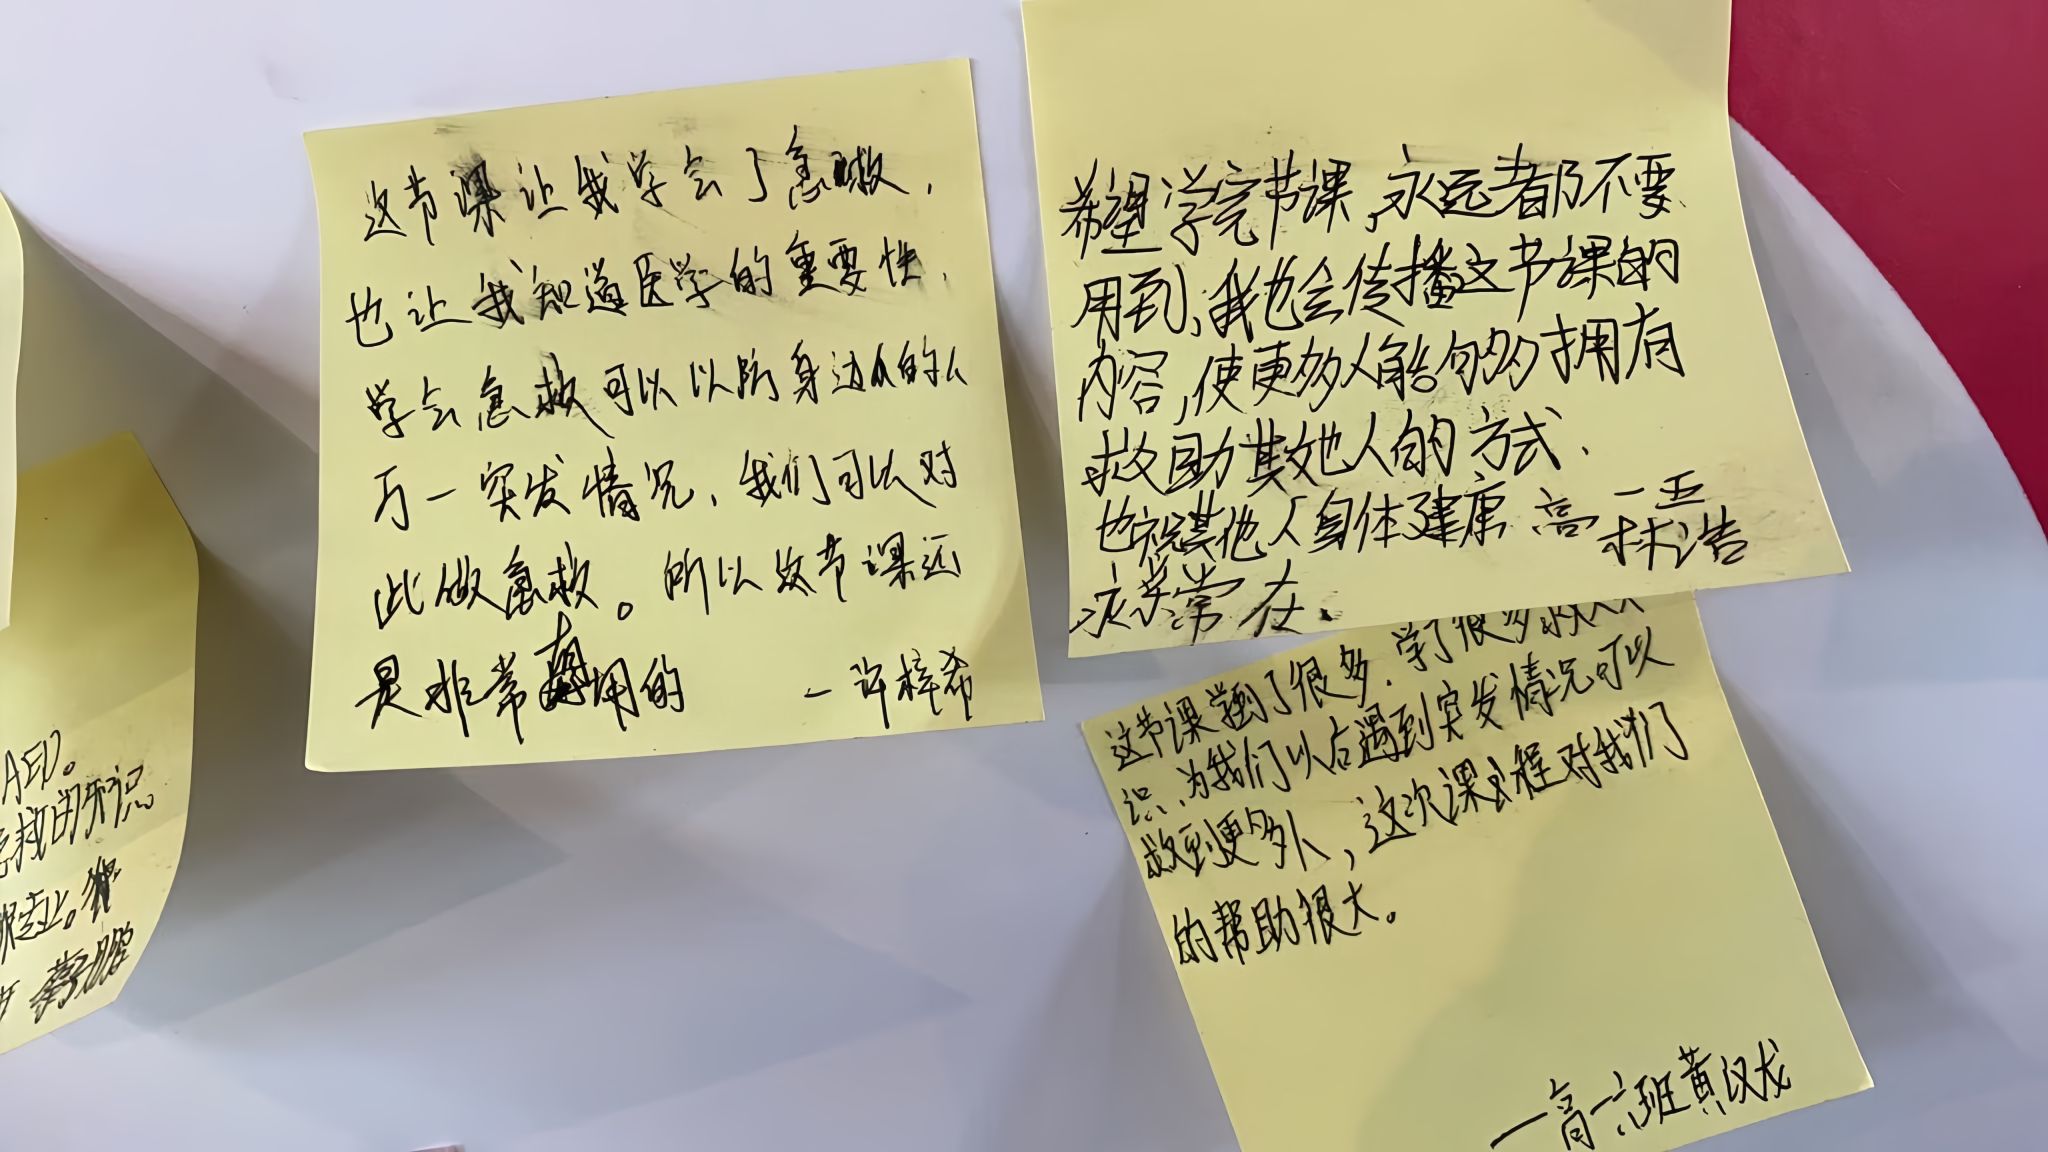 这节课让我学会了急救，
也让我知道医学的重要性，
学会急救可以以防身边人的
万一突发情况，我们可以对
此做急救。所以这节课还
是非常有用的
一许梓希
希望学完节课，永远都不要
用到，我也会传播这节课的
内容，使更多人能够多拥有
救助其她人的方式．
也祝其他人身体建康
常在．
高一五
林浩
这节课学到了很多．学了很多救人
识，为我们以后遇到突发情况可以
救到更多人，这次课程对我们
的帮助很大。
一高一六班黄汉龙
AED。
急救的知识